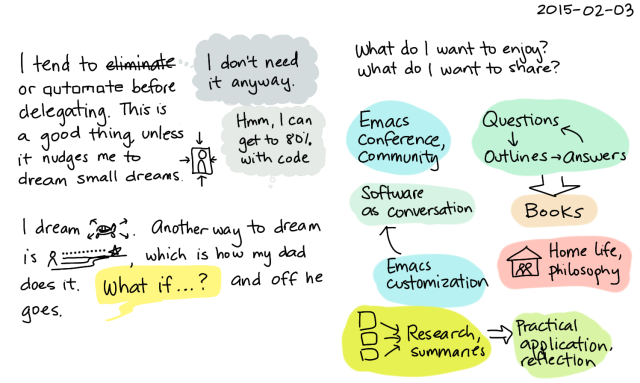 2015-02-03
I tend to eliminate
or automate before
delegating. This is
a good thing, unless
it nudges me to
dream small dreams.
I don't need
it anyway.
Hmm, I can
get to 80%
with code
I dream . Another way to dream
is , which is how my dad
does it. What if...? and off he
goes.
What do I want to enjoy?
What do I want to share?
Emacs
Conference,
Community
Questions
Outlines → answers
Books
Software
as conversation
Emacs
customization
Home life,
philosophy
Research,
summaries
Practical
application,
reflection